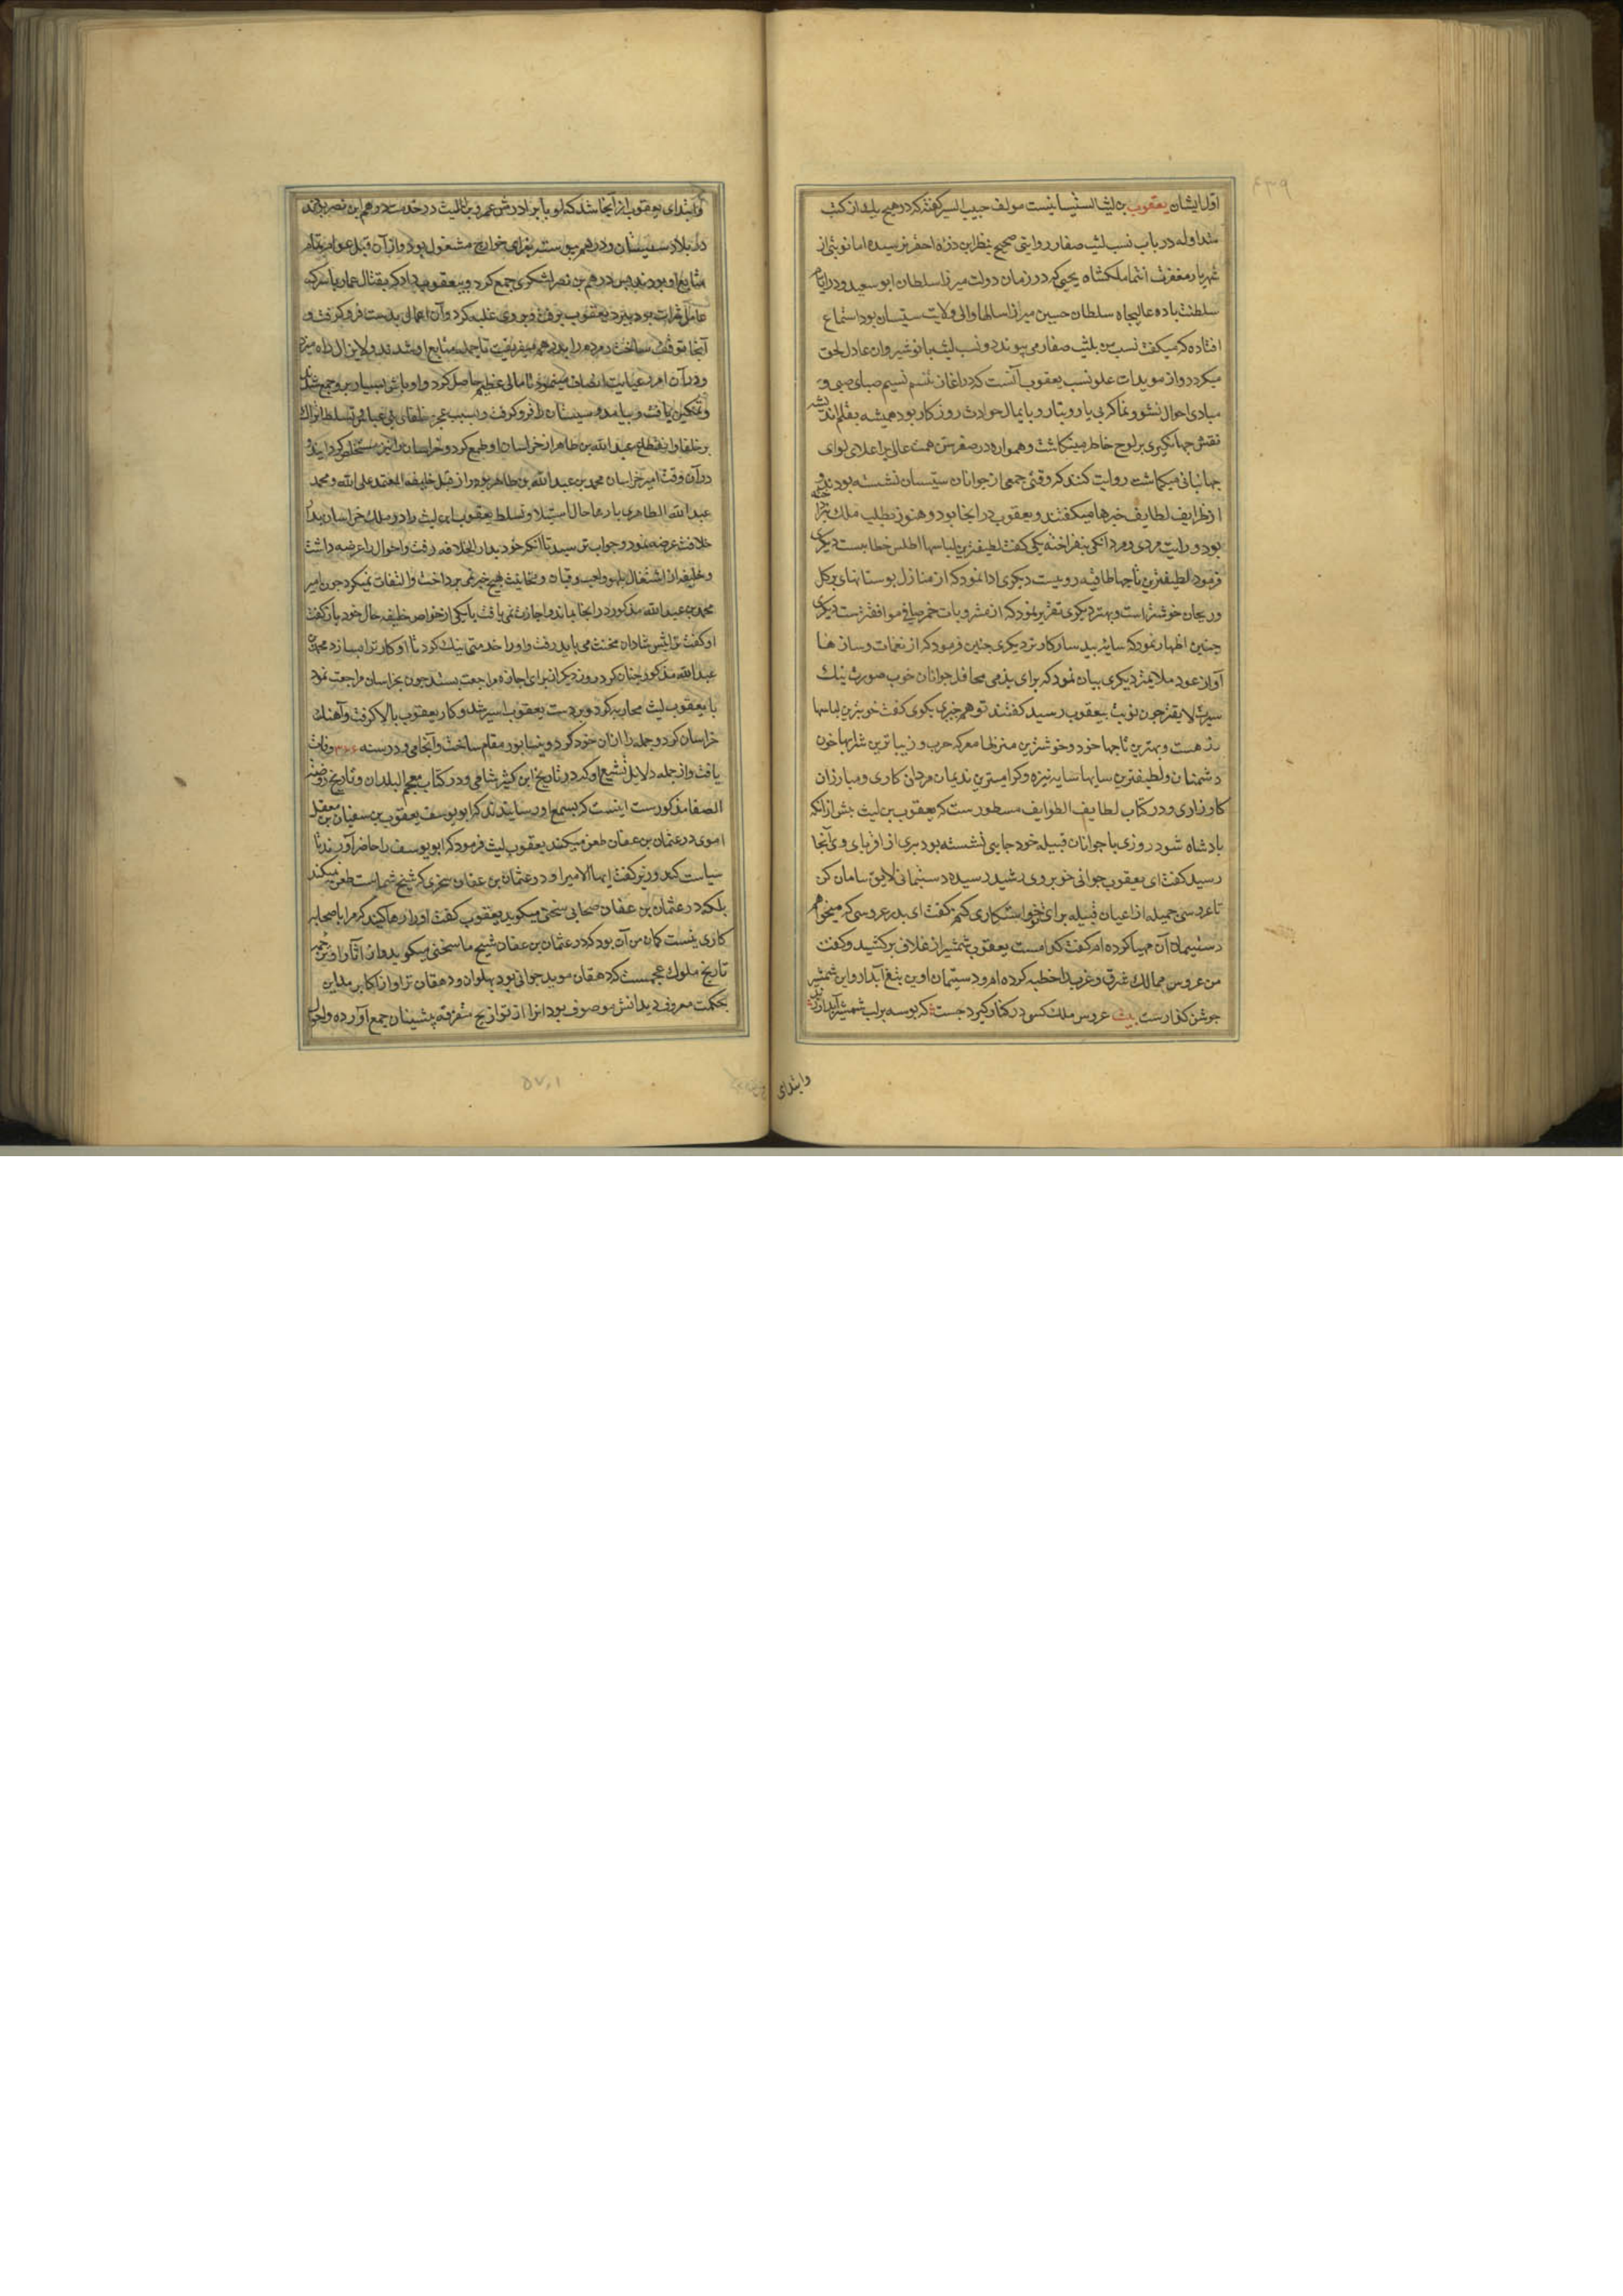 اول ایشان یعقوب بن لیث السیستانیست مولف حبیب السیر گفته که در هیچ یک از کتب
متداوله در باب نسب لیث صفار روایتی صحیح بنظر این ذره احقر نرسیده اما نوبتی از
شهریار مغفرت انتما ملکشاه یحیی که در زمان دولت میرزا سلطان ابو سعید و در ایام
سلطنت باده عالیجاه سلطان حسین میرزا سالها والی ولایت سیستان بود استماع
افتاده که میکفت نسب من بلیث صفار می پیوندد و نسب لیث بانوشیروان عادل لحق
میکردد و از مویدات علو نسب یعقوب آنست که در اغاز تنسم نسیم صبای صبی و
مبادی احوال نشو و نما کرنی یار و بتار و پایمال حوادث روزکار بود همیشه بقلم اندیشه
نقش جهانکیری بر لوح خاطر مینکاشت و همواره در صفر سن همت عالی بر اعلای لوای
جهانبانی میکماشت روایت کنند که وقتی جمعی از جوانان سیستان نشسته بودند و
از ظرایف لطایف خبرها میکفتند و یعقوب در انجا بود و هنوز بطلب ملک
بود و رایت مردی و مردانکی بفراخته یکی کفت لطیفترین لباسها اطلس خطایست دیکری
فرمود لطیفترین تاجها طاقیه رومیست دیکری ادا نمود که از منازل بوستانهای پرکل
و ریحان خوشتر است و بهتر دیکری تقریر نمود که از مشروبات خمر صافی موافقترست دیکری
چنین اظهار نمود که سایه بید سازکارتر دیکری چنین فرمود که از نغمات و سازها
آواز عود ملایمتر دیکری بیان نمود که برای بزمی محافل جوانان خوب صورت نیک
سیرت لایقتر چون نوبت بیعقوب رسید کفتند تو هم چیزی بکوی کفت خوبترین لباسها
زرهست و بهترین تاجها خود و خوشترین منزلها معرکه حرب و زیباترین شرابها خون
دشمنان و لطیفترین سایها سایه نیزه و کرامی‌ترین ندیمان مردان کاری و مبارزان
کارزاری و در کتاب لطایف الطوایف مسطورست که یعقوب بن لیث پیش از آنکه
پادشاه شود روزی با جوانان قبیله خود جایی نشسته بود پیری از اقربای وی آنجا
رسید کفت ای یعقوب جوانی خوبروی رشید رسیده دستپیمانی لایق سامان کن
تا عروسی جمیله از اعیان قبیله برای تو خواستکاری کنم کفت ای پدر عروسی که میخواهم
دستپیمان آن مهیا کرده ام کفت کدامست یعقوب شمشیر از غلاف برکشید و کفت
من عروس ممالک شرق و غرب را خطبه کرده ام و دستپیمان او این تیغ آبدار و این شمشیر
جوشن کذارست بیت عروس ملک کسی در کنار کیرد چست که بوسه بر لب شمشیر آبدار زند
وابتدای
وابتدای یعقوب از آنجا شد که او با برادرش عمرو بن اللیث در خدمت درهم ابن نصر بودند
در بلاد سیستان و درهم پیوسته بغزای خوارج مشغول بود و از آن قبل عوام تمام
متابع او بودند پس درهم بن نصر لشکری جمع کرد و بیعقوب داد که بقتال عمار یاسر که
عامل هرات بود ببرد یعقوب برفت و بر وی غلبه کرد و آن اعمالی بدست فرو کرفت و
آنجا توقف ساخت و مردم را بدرهم میفریفت تا جمله متابع او شدند و لایزال راه میزد
و در آن امر رعایت انصاف مینمود تا مالی عظیم حاصل کرد و اوباش بسیار برو جمع شدند
و تمکین یافت و بیامد و سیستان را فرو کرفت و بسبب عجز خلفای بنی عباس و تسلط اتراک
بر خلفا و انقطاع عبد الله بن طاهر از خراسان او طمع کرد و خراسان را نیز مستخلص کردانید و
در آن وقت امیر خراسان محمد بن عبد الله بن طاهر بود از قبل خلیفه المعتمد علی الله و محمد
عبد الله الطاهری بارها حال استیلا و تسلط یعقوب ابن لیث را در ملک خراسان بدار
خلافت عرضه نمود و جواب نرسید تا آنکه خود بدار الخلافه رفت و احوال را عرضه داشت
و خلیفه از اشتغال بلهو و لعب و قیان و مخانیث هیچ خبر نمی پرداخت و التفات نمیکرد چون امیر
محمد بن عبد الله مذکور در انجا بماند و اجازت نمی یافت با یکی از خواص خلیفه حال خود باز کفت
او کفت ترا پیش شادان مخنث می باید رفت و او را خدمتهای نیک کرد تا او کار ترا بسازد محمد بن
عبد الله مذکور چنان کرد روز دیکر از برای اجازه مراجعت بستد چون بخراسان مراجعت نمود
با یعقوب لیث محاربه کرد و بر دست یعقوب اسیر شد و کار یعقوب بالا کرفت و آهنک
خراسان کرد و جمله را از آن خود کرد و نیسابور مقام ساخت و آنجا می و در سنه ۲۶۶ وفات
یافت و از جمله دلایل تشیع او که در تاریخ ابن کثیر شامی و در کتاب معجم البلدان و تاریخ روضة
الصفا مذکورست اینست که بسمع او رسانیدند که ابو یوسف یعقوب بن سفیان بن معقل
اموی در عثمان بن عفان طعن میکند یعقوب لیث فرمود که ابو یوسف را حاضر آورند تا
سیاست کند وزیر کفت ایها الامیر او در عثمان بن عفان سجزی که شیخ شماست طعن میکند
بلکه در عثمان بن عفان صحابی سخن میکوید یعقوب کفت او را رها کنید که مرا با صحابه
کاری نیست کمان من آن بود که در عثمان بن عفان شیخ ما سخنی میکوید و از آثار او ترجمه
تاریخ ملوک عجمست که دهقان موبد جوانی بود پهلوان و دهقان نژاد از اکابر مداین
بحکمت معروف و بدانش موصوف بود انرا از تواریخ متفرقه پیشینان جمع آورده و احوال